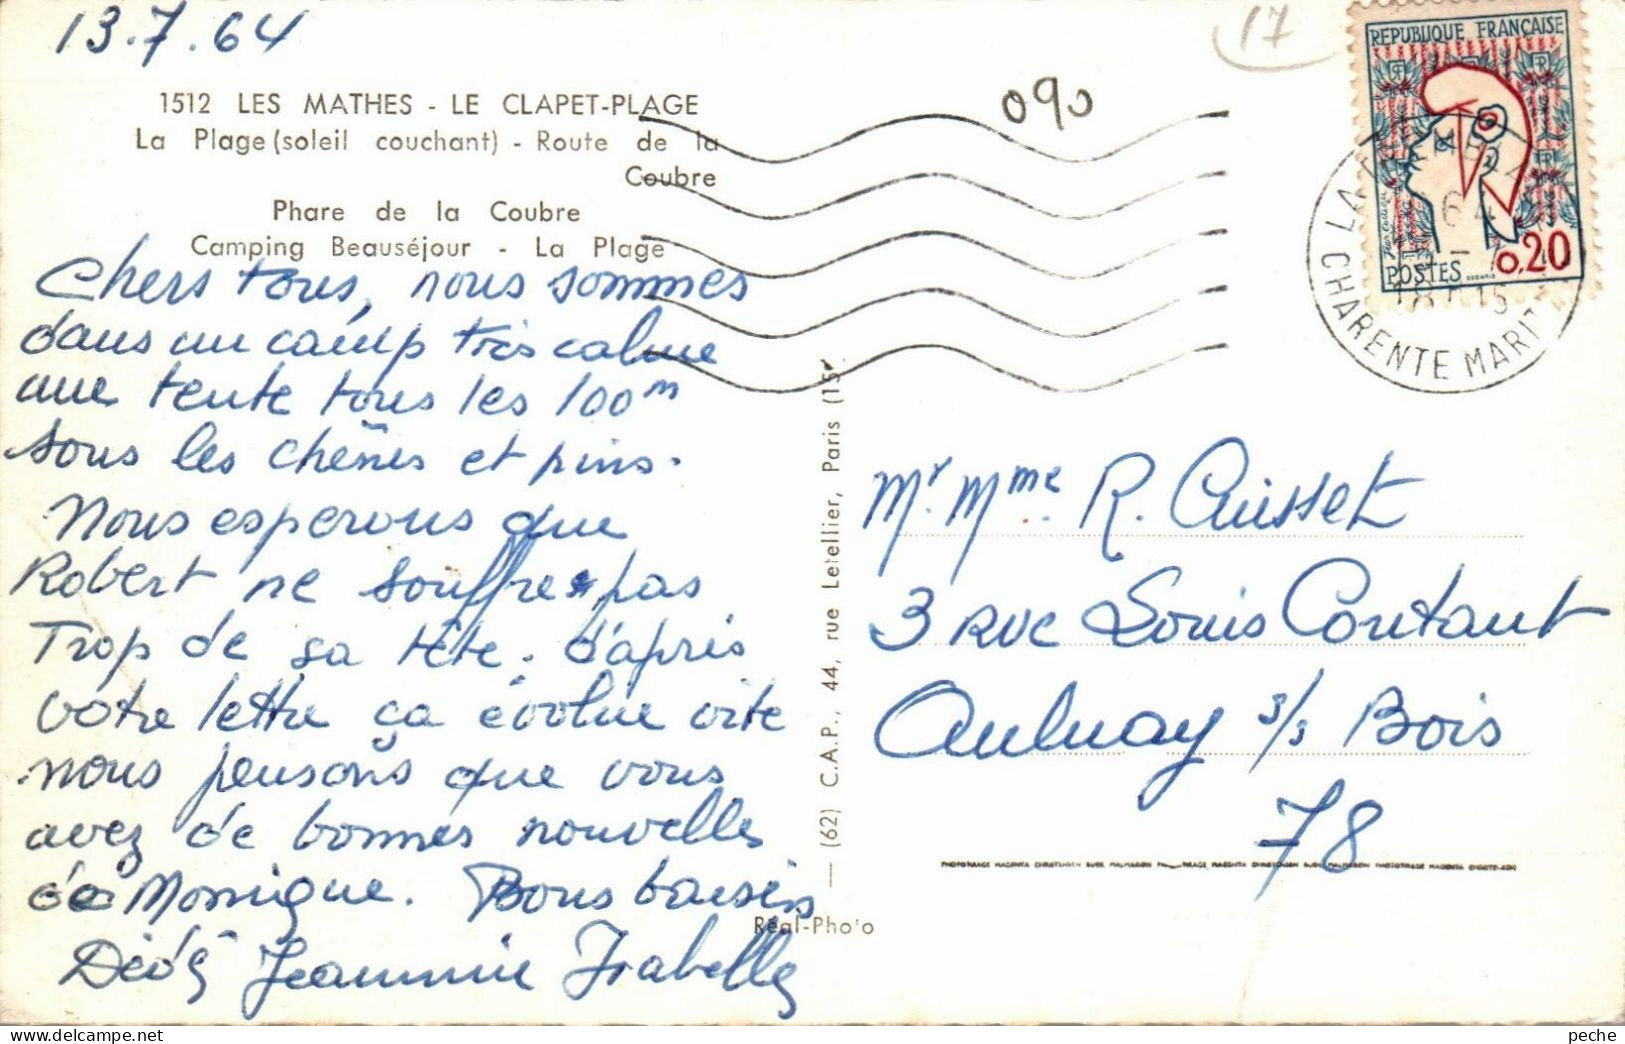 13.7.64
1512 LES MATHES - LE CLAPET-PLAGE
La Plage (soleil couchant) - Route de la
Coubre
Phare de la Coubre
Camping Beauséjour - La Plage
Chers tous, nous sommes
dans un camp très calme
une tente tous les 100m
sous les chênes et pins.
Nous esperons que
Robert ne souffre pas
Trop de sa tête. d'après
votre lettre ça évolue vite
nous pensons que vous
avez de bonnes nouvelles
de Monique. Bons baisers
Dédé Jeannine Isabelle
17
090
REPUBLIQUE FRANÇAISE
POSTES 0,20
CHARENTE MARIT
— (62) C.A.P., 44, rue Letellier, Paris (15e
Réal-Photo
Mr. Mme. R. Cuisset
3 Rue Louis Coutant
Aulnay s/s Bois
78
www.delcampe.net
peche